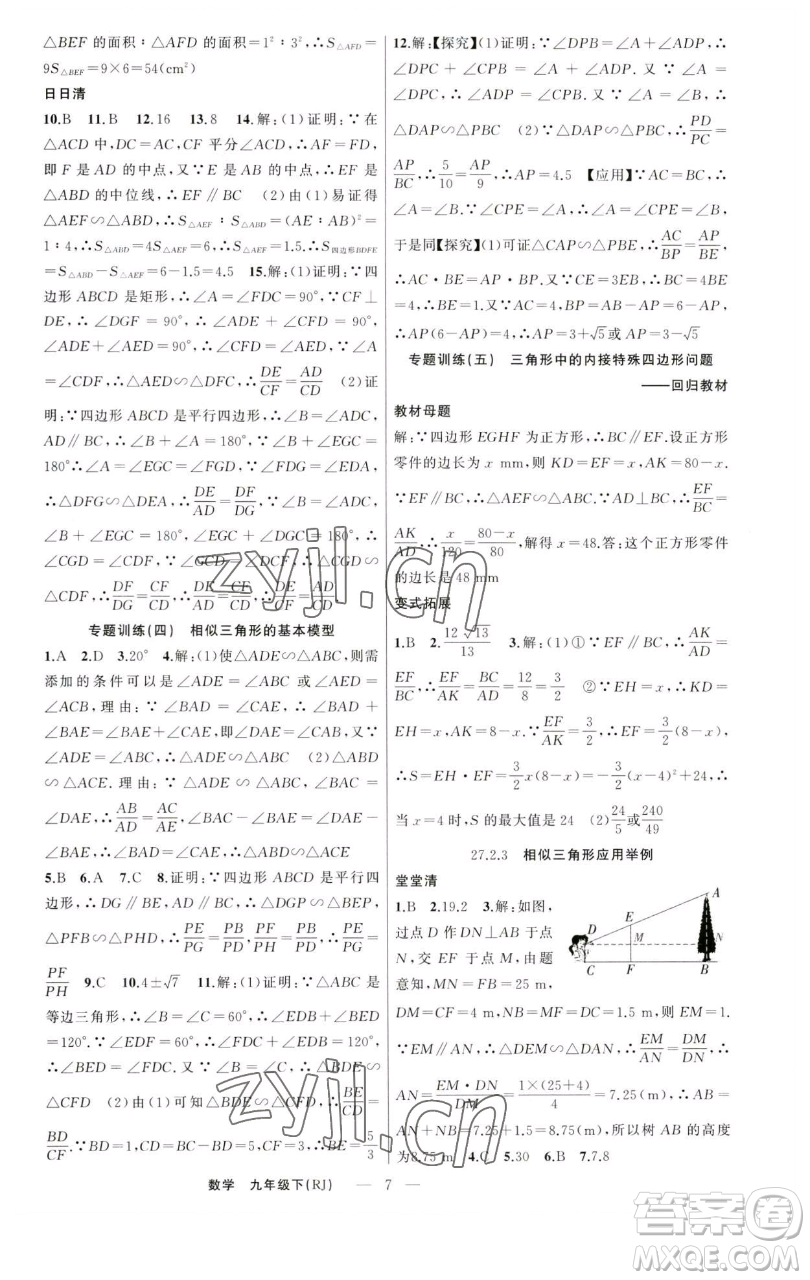 △BEF 的面积∶△AFD 的面积=1²∶3²,∴S△AFD=
9S△BEF=9×6=54(cm²)
日日清
10.B 11.B 12.16 13.8 14.解:(1)证明:∵在
△ACD 中,DC=AC,CF 平分∠ACD,∴AF=FD,
即 F 是 AD 的中点,又∵E 是 AB 的中点,∴EF 是
△ABD 的中位线,∴EF∥BC (2)由(1)易证得
△AEF∽△ABD,∴S△AEF∶S△ABD=(AE∶AB)²=
1∶4,∴S△ABD=4S△AEF=6,∴S△AEF=1.5,∴S四边形BDFE
=S△ABD-S△AEF=6-1.5=4.5 15.解:(1)证明:∵四
边形 ABCD 是矩形,∴∠A=∠FDC=90°,∵CF⊥
DE,∴∠DGF=90°,∴∠ADE+∠CFD=90°,
∠ADE+∠AED=90°,∴∠CFD=∠AED,∵∠A
=∠CDF,∴△AED∽△DFC,∴DE/CF=AD/CD (2)证
明:∵四边形 ABCD 是平行四边形,∴∠B=∠ADC,
AD∥BC,∴∠B+∠A=180°,∵∠B+∠EGC=
180°,∴∠A=∠EGC=∠FGD,∵∠FDG=∠EDA,
∴△DFG∽△DEA,∴DE/AD=DF/DG,∵∠B=∠ADC,
∠B+∠EGC=180°,∠EGC+∠DGC=180°,∴
∠CGD=∠CDF,∵∠GCD=∠DCF,∴△CGD∽
△CDF,∴DF/DG=CF/CD,∴DE/AD=CF/CD,∴DE/CF=AD/CD
专题训练(四) 相似三角形的基本模型
1.A 2.D 3.20° 4.解:(1)使△ADE∽△ABC,则需
添加的条件可以是∠ADE=∠ABC 或∠AED=
∠ACB,理由:∵∠BAD=∠CAE,∴∠BAD+
∠BAE=∠BAE+∠CAE,即∠DAE=∠CAB,又∵
∠ADE=∠ABC,∴△ADE∽△ABC (2)△ABD
∽△ACE.理由:∵△ADE∽△ABC,∴∠BAC=
∠DAE,∴AB/AD=AC/AE,∠BAC-∠BAE=∠DAE-
∠BAE,∴∠BAD=∠CAE,∴△ABD∽△ACE
5.B 6.A 7.C 8.证明:∵四边形 ABCD 是平行四
边形,∴DG∥BH,DA∥BC,∴△DGP∽△BEP,
△PFB∽△PHD,∴PE/PG=PB/PD,PF/PH=PB/PD,∴PE/PG=
PF/PH 9.C 10.4±√7 11.解:(1)证明:∵△ABC 是
等边三角形,∴∠B=∠C=60°,∴∠BDE+∠BED
=120°,∵∠EDF=60°,∴∠BDE+∠FDC=120°,
∴∠BED=∠FDC.又∵∠B=∠C,∴△BDE∽
△CFD (2)由(1)可知△BDE∽△CFD,∴BE/CD=
BD/CF.∵BD=1,CD=BC-BD=5,CF=3,∴BE=5/3
12.解:【探究】(1)证明:∵∠DPB=∠A+∠ADP,∴
∠DPC+∠CPB=∠A+∠ADP.又∵∠A=
∠DPC,∴∠ADP=∠CPB.又∵∠A=∠B,∴
△DAP∽△PBC (2)∵△DAP∽△PBC,∴PD/PC=
AP/BC,∴5/10=AP/9,∴AP=4.5 【应用】∵AC=BC,∴
∠A=∠B.∵∠CPE=∠A,∴∠A=∠CPE=∠B,
于是同【探究】(1)可证△CAP∽△PBE,∴AC/BP=AP/BE,
∴AC·BE=AP·BP.又∵CE=3EB,∴BC=4BE
=4,∴BE=1.又∵AC=BC,BP=AB-AP=6-AP,
∴AP(6-AP)=4,∴AP=3+√5或AP=3-√5
专题训练(五) 三角形中的内接特殊四边形问题
——回归教材
教材母题
解:∵四边形 EGHF 为正方形,∴BC∥EF.设正方形
零件的边长为 x mm,则 KD=EF=x,AK=80-x.
∵EF∥BC,∴△AEF∽△ABC.∵AD⊥BC,∴EF/BC=
AK/AD,∴x/120=80-x/80,解得 x=48.答:这个正方形零件
的边长是 48 mm
变式拓展
1.B 2.12√13/13 3.解:(1)①∵EF∥BC,∴AK/AD=
EF/BC,∴EF/AK=BC/AD=12/8=3/2 ②∵EH=x,∴KD=
EH=x,AK=8-x.∵EF/AK=3/2,∴EF=3/2(8-x),
∴S=EH·EF=3/2x(8-x)=-3/2(x-4)²+24,∴
当 x=4 时,S 的最大值是 24 (2)24/5或240/49
27.2.3 相似三角形应用举例
堂堂清
1.B 2.19.2 3.解:如图,
过点 D 作 DN⊥AB 于点
N,交 EF 于点 M,由题
意知,MN=FB=25 m,
A
D
E
M
N
C
F
B
DM=CF=4 m,NB=MF=DC=1.5 m,则 EM=1.
∵EM∥AN,∴△DEM∽△DAN,∴EM/AN=DM/DN,∴
AN=EM·DN/DM=1×(25+4)/4=7.25(m),∴AB=
AN+NB=7.25+1.5=8.75(m),所以树 AB 的高度
为8.75 m 4.C 5.30 6.B 7.7.8
数学 九年级下(RJ) — 7 —
zyjl.cn
zyjl.cn
答案圈
MXQE.COM